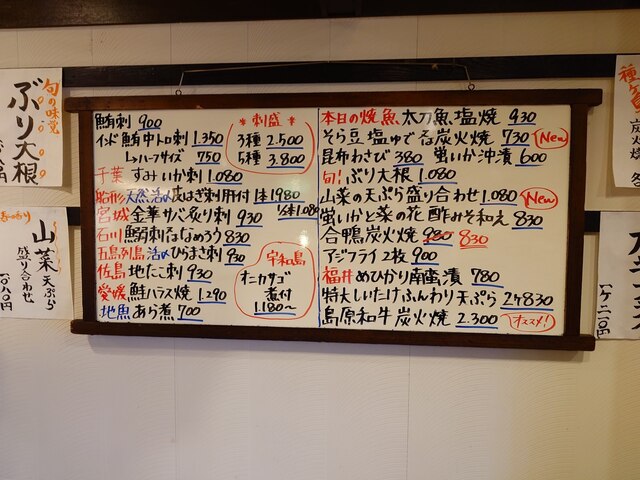 旬の味覚
ぶり大根
春の香り
山菜
天ぷら
盛り合わせ
一〇八〇円
鮪刺 900
インド鮪中トロ刺 1.350
↳ハーフサイズ 750
千葉 すみいか刺 1.080
船形 天然活〆皮はぎ刺肝付 1本1980
1/2本1.080
宮城 金華サバ炙り刺 930
石川 鰤刺 なめろう 830
五島列島 活〆ひらまさ刺 930
佐島 地たこ刺 930
愛媛 鮭ハラス焼 1.290
地魚 あら煮 700
* 刺盛 *
3種 2.500
5種 3.800
宇和島
オニカサゴ
煮付
1.180〜
本日の焼魚 太刀魚塩焼 930
そら豆 塩ゆで or 炭火焼 730 New
昆布わさび 380 蛍いか沖漬 600
旬! ぶり大根 1.080
山菜の天ぷら盛り合わせ 1.080 New
蛍いかと菜の花 酢みそ和え 830
合鴨炭火焼 980 830
アジフライ2枚 900
福井 めひかり南蛮漬 780
特大しいたけふんわり天ぷら 2ケ830
島原和牛炭火焼 2.300 オススメ!
炭火焼